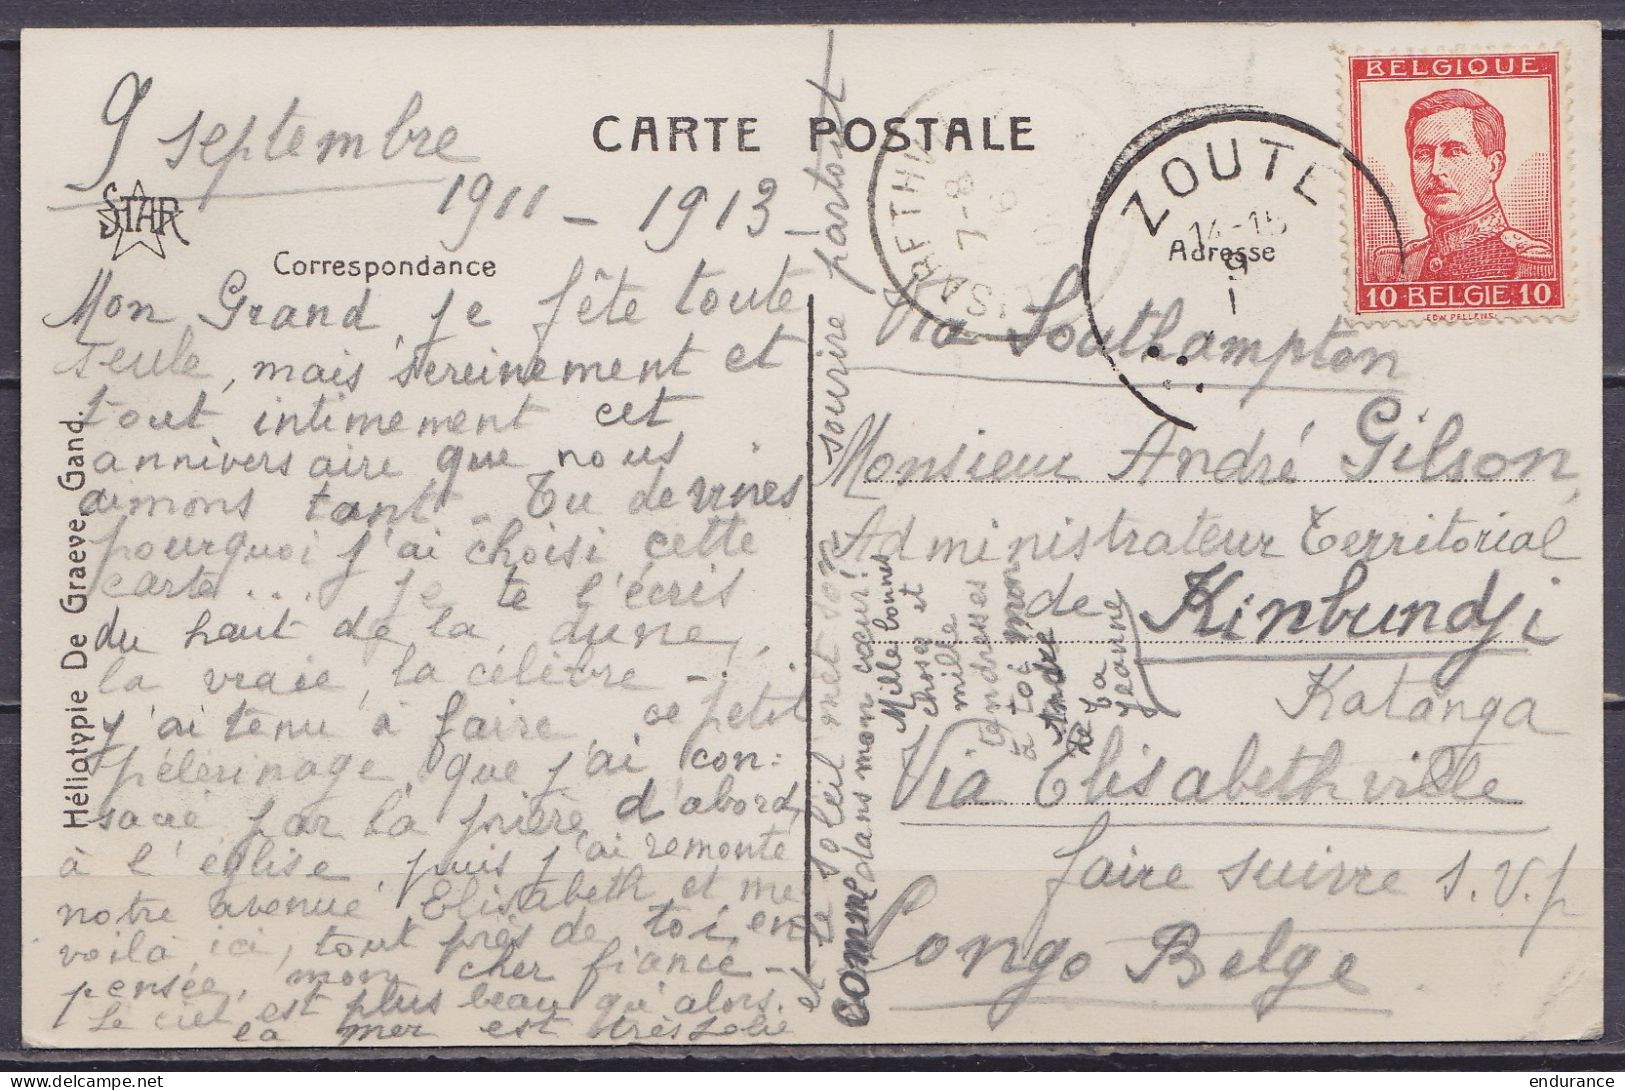 9 septembre
1911 - 1913
CARTE POSTALE
STAR
Correspondance
Mon Grand, je fête toute
seule, mais sereinement et
tout intimement cet
anniversaire que nous
aimons tant. Tu devines
pourquoi j'ai choisi cette
carte... je te l'écris
du haut de la dune,
la vraie, la célèbre -
j'ai tenu à faire ce petit
pèlerinage que j'ai con=
sacré par la prière d'abord,
à l'église, puis j'ai remonté
notre avenue Elisabeth et me
voilà ici, tout près de toi en
pensée, mon cher fiancé -
Le ciel est plus beau qu'alors,
la mer est très jolie
et le soleil met son sourire partout
comme dans mon cœur!
Mille bonnes
choses et
mille
tendresses
à toi mon
André
de ta
Jeanne
Héliotypie De Graeve, Gand.
BELGIQUE
10 BELGIE 10
EDW PELLENS
ZOUTE
14-15
9
7-8
Adresse
Via Southampton
Monsieur André Gilson,
Administrateur Territorial
de Kinbundji
Katanga
Via Elisabethville
faire suivre s.v.p
Congo Belge
endurance
delcampe.net